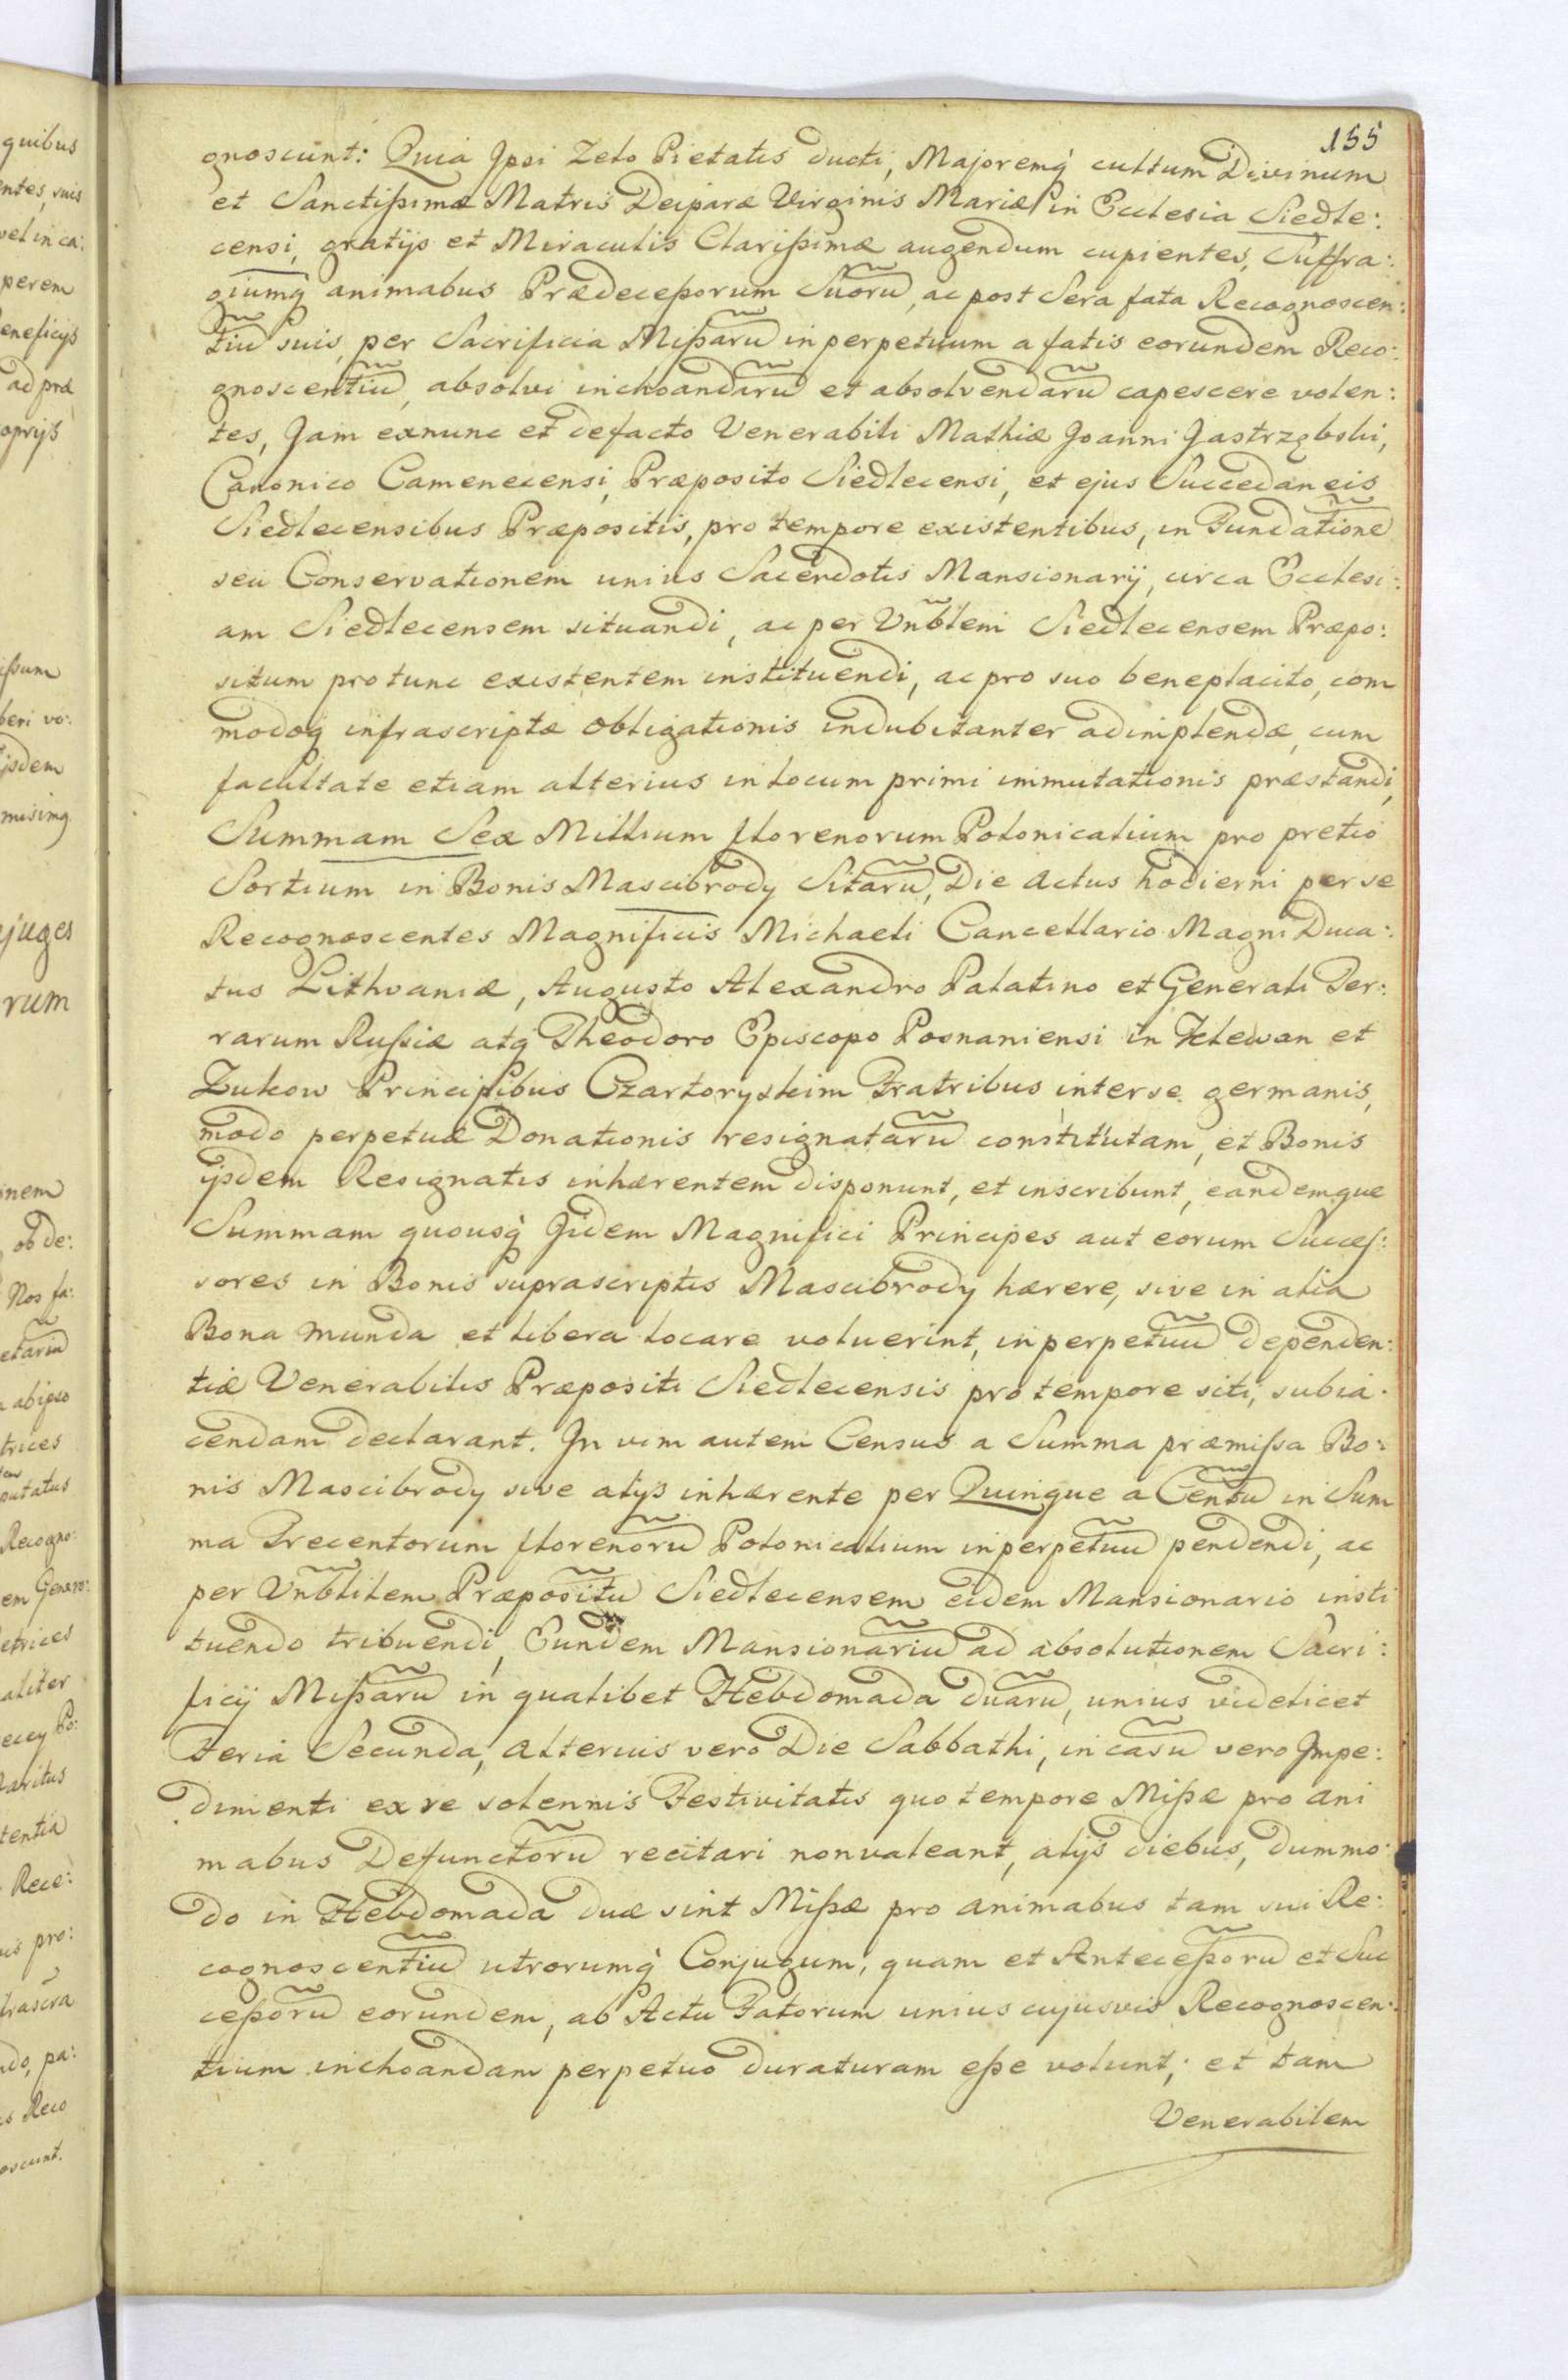 155
gnoscunt: Quia Jpsi Zelo Pietatis ducti, Majoremq̀ cultum Divinum
et Sanctißimæ Matris Deiparæ Virginis Mariæ in Ecclesia Siedle:
censi, gratijs et Miraculis Clarißimæ augendum cupientes, Suffra:
giumq̀ animabus Prædeceßorum Suorũ, ac post Sera fata Recognoscen:
tiũ suis, per Sacrificia Mißarũ in perpetuum a fatis eorundem Reco:
gnoscentiũ, absolvi inchoandarũ et absolvendarũ capescere volen:
tes, Jam exnunc et defacto Venerabili Mathiæ Joanni Jastrzębski,
Canonico Camenecensi, Præposito Siedlecensi, et ejus Succedaneis
Siedlecensibus Præpositis, pro tempore existentibus, in Fundatione͂
seu Conservationem unius Sacerdotis Mansionarij, circa Ecclesi:
am Siedlecensem situandi, ac per Vn͂blem Siedlecensem Præpo:
situm pro tunc existentem instituendi, ac pro suo beneplacito, com
modoq̀ infrascriptæ obligationis indubitanter adimplendæ, cum
facultate etiam alterius in locum primi immutationis præstandi,
Summam Sex Millium florenorum Polonicalium pro pretio
Sortium in Bonis Mascibrody Sitarũ, Die actus hodierni per se
Recognoscentes Magnificis Michaeli Cancellario Magni Duca:
tus Lithvaniæ, Augusto Alexandro Palatino et Generali Ter:
rarum Rußiæ atq Theodoro Episcopo Posnaniensi in Klewan et
Zukow Principibus Czartoryskim Fratribus inter se germanis,
modo perpetuæ Donationis resignatarũ constitutam, et Bonis
ijsdem Resignatis inhærentem disponunt, et inscribunt, eandemque
Summam quousq̀ Jidem Magnifici Principes aut eorum Succes:
sores in Bonis suprascriptis Mascibrody hærere, sive in alia
Bona munda et libera locare voluerint, in perpetuũ dependen:
tiæ Venerabilis Præpositi Siedlecensis pro tempore siti, subia:
cendam declarant. Jn vim autem Census a Summa præmissa Bo:
nis Mascibrody sive alijs inhærente per Quinque a Centũ in Sum
ma Trecentorum florenorũ Polonicalium in perpetuũ pendendi, ac
per Vn͂blilem Præpositũ Siedlecensem eidem Mansionario insti
tuendo tribuendi, Eundem Mansionariũ ad absolutionem Sacri:
ficij Mißarũ in qualibet Hebdomada duarũ, unius videlicet
Feria Secunda, alterius vero Die Sabbathi, in casũ vero Jmpe:
dimenti ex re solennis Festivitatis quo tempore Mißæ pro ani
mabus Defunctorũ recitari non valeant, alijs diebus, dummo:
do in Hebdomada duæ sint Mißæ pro animabus tam sui Re:
cognoscentiũ utrorumq̀ Conjugum, quam et Anteceßorũ et Suc
ceßorũ eorundem, ab Actu Fatorum unius cujusvis Recognoscen:
tium inchoandam perpetuo duraturam eße volunt; et tam
Venerabilem